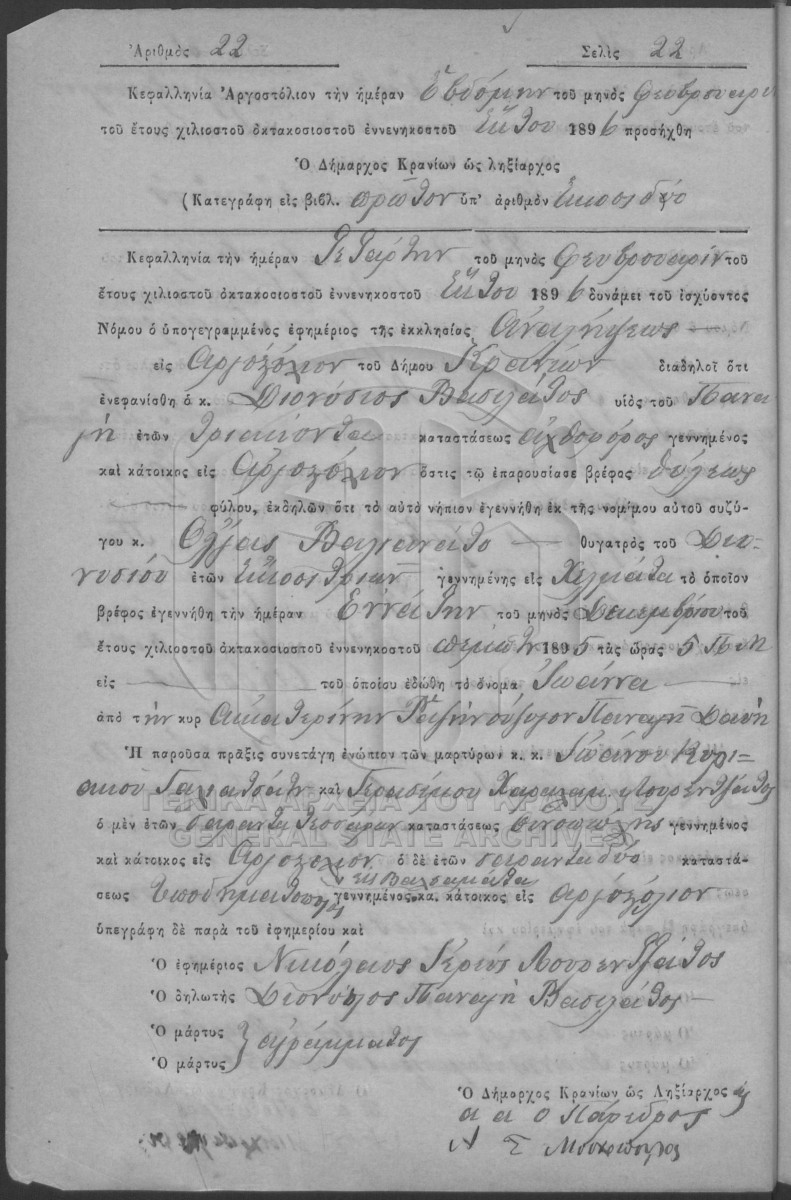 Ἀριθμὸς 22 Σελὶς 22
Κεφαλληνία Ἀργοστόλιον τὴν ἡμέραν Ἑβδόμην τοῦ μηνὸς Φεβρουαρίου
τοῦ ἔτους χιλιοστοῦ ὀκτακοσιοστοῦ ἐννενηκοστοῦ Ἕκτου 1896 προσήχθη
Ὁ Δήμαρχος Κρανίων ὡς ληξίαρχος
(Κατεγράφη εἰς βιβλ. πρῶτον ὑπ' ἀριθμὸν εἴκοσι δύο
Κεφαλληνία τὴν ἡμέραν Τετάρτην τοῦ μηνὸς Φευρουαρίου τοῦ
ἔτους χιλιοστοῦ ὀκτακοσιοστοῦ ἐννενηκοστοῦ Ἕκτου 1896 δυνάμει τοῦ ἰσχύοντος
Νόμου ὁ ὑπογεγραμμένος ἐφημέριος τῆς ἐκκλησίας Ἀναλήψεως
εἰς Ἀργοστόλιον τοῦ Δήμου Κρανίων διαδηλοῖ ὅτι
ἐνεφανίσθη ὁ κ. Διονύσιος Βασιλάτος υἱὸς τοῦ Πανα
γῆ ἐτῶν τριάκοντα καταστάσεως ἀχθοφόρος γεννημένος
καὶ κάτοικος εἰς Ἀργοστόλιον ὅστις τῷ ἐπαρουσίασε βρέφος θήλεως
φύλου, ἐκδηλῶν ὅτι τὸ αὐτὸ νήπιον ἐγεννήθη ἐκ τῆς νομίμου αὐτοῦ συζύ-
γου κ. Ὄλγας Βαλιανάτο θυγατρὸς τοῦ Διο-
νυσίου ἐτῶν εἴκοσι τριῶν γεννημένης εἰς Χελμάτα τὸ ὁποῖον
βρέφος ἐγεννήθη τὴν ἡμέραν Ἐννάτην τοῦ μηνὸς Δεκεμβρίου τοῦ
ἔτους χιλιοστοῦ ὀκτακοσιοστοῦ ἐννενηκοστοῦ πέμπτου 1895 τὰς ὥρας 5 Π.Μ
εἰς τοῦ ὁποίου ἐδώθη τὸ ὄνομα Ἰωάννα
ἀπὸ τὴν κυρ Αἰκατερίνην σύζυγον Παναγῆ Δαυῆ
Ἡ παροῦσα πρᾶξις συνετάγη ἐνώπιον τῶν μαρτύρων κ. κ. Ἰωάννου Κυρι-
ακοῦ Γαλιατσάτου καὶ Γερασίμου Χαραλάμ. Λουρεντζάτος
ὁ μὲν ἐτῶν σαράντα τεσσάρων καταστάσεως οἰνοπώλης γεννημένος
καὶ κάτοικος εἰς Ἀργοστόλιον ὁ δὲ ἐτῶν σαράντα δύο καταστά-
σεως ὑποδηματοποιός γεννημένος εἰς Βαλσαμάτα κα. κάτοικος εἰς Ἀργοστόλιον
ὑπεγράφη δὲ παρὰ τοῦ ἐφημερίου καὶ
Ὁ ἐφημέριος Νικόλαος Ἱερεύς Λουρεντζάτος
Ὁ δηλωτὴς Διονύσιος Παναγῆ Βασιλάτος
Ὁ μάρτυς
Ὁ μάρτυς } ἀγράμματος
Ὁ Δήμαρχος Κρανίων ὡς Ληξίαρχος
α α ὁ Πάρεδρος
ΓΕΝΙΚΑ ΑΡΧΕΙΑ ΤΟΥ ΚΡΑΤΟΥΣ
GENERAL STATE ARCHIVES